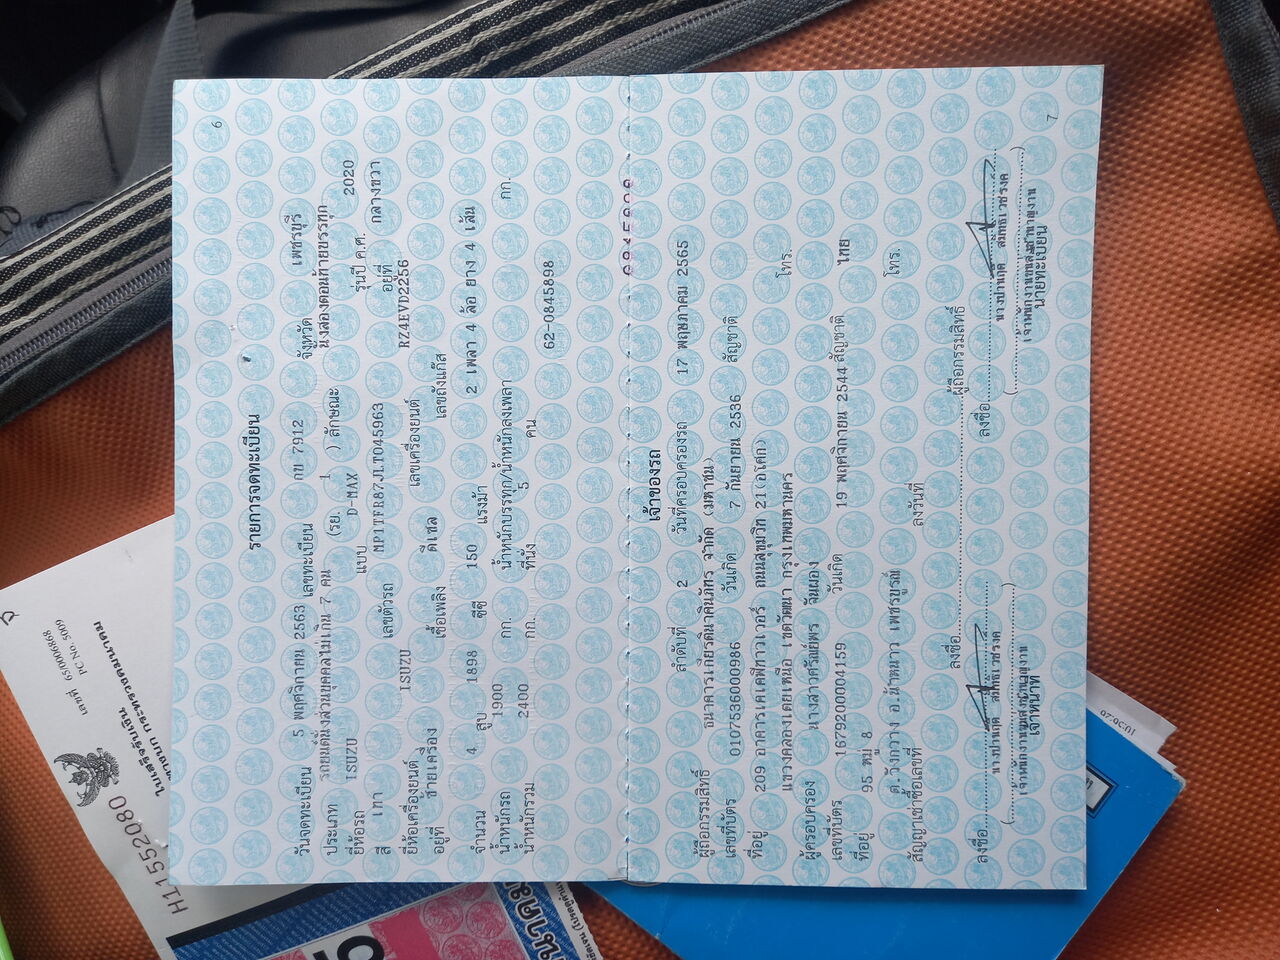 6
รายการจดทะเบียน
วันจดทะเบียน 5 พฤศจิกายน 2563 เลขทะเบียน กย 7912 จังหวัด เพชรบุรี
ประเภท รถยนต์นั่งส่วนบุคคลไม่เกิน 7 คน (รย. 1 ) ลักษณะ นั่งสองตอนท้ายบรรทุก
ยี่ห้อรถ ISUZU แบบ D-MAX รุ่นปี ค.ศ. 2020
สี เทา เลขตัวรถ MP1TFR87JLT045963 อยู่ที่ กลางขวา
ยี่ห้อเครื่องยนต์ ISUZU เลขเครื่องยนต์ RZ4EVD2256
อยู่ที่ ซ้ายเครื่อง เชื้อเพลิง ดีเซล เลขถังแก๊ส
จำนวน 4 สูบ 1898 ซีซี 150 แรงม้า 2 เพลา 4 ล้อ ยาง 4 เส้น
น้ำหนักรถ 1900 กก. น้ำหนักบรรทุก/น้ำหนักลงเพลา กก.
น้ำหนักรวม 2400 กก. ที่นั่ง 5 คน
62-0845898
เจ้าของรถ
ลำดับที่ 2 วันที่ครอบครองรถ 17 พฤษภาคม 2565
ผู้ถือกรรมสิทธิ์ ธนาคารเกียรตินาคินภัทร จำกัด (มหาชน)
เลขที่บัตร 0107536000986 วันเกิด 7 กันยายน 2536 สัญชาติ
ที่อยู่ 209 อาคารเคเคพีทาวเวอร์ ถนนสุขุมวิท 21(อโศก)
แขวงคลองเตยเหนือ เขตวัฒนา กรุงเทพมหานคร โทร.
ผู้ครอบครอง นางสาวศรัณย์พร จันผ่อง
เลขที่บัตร 1679200004159 วันเกิด 19 พฤศจิกายน 2544 สัญชาติ ไทย
ที่อยู่ 95 หมู่ 8
ต.วังกวาง อ.น้ำหนาว เพชรบูรณ์ โทร.
สัญญาเช่าซื้อเลขที่ ลงวันที่
ลงชื่อ ผู้ถือกรรมสิทธิ์
ลงชื่อ ลงชื่อ
เจ้าพนักงานขนส่งชำนาญงาน เจ้าพนักงานขนส่งชำนาญงาน
เจ้าหน้าที่ นายทะเบียน
7
เลขที่ 65/0006868
PC No. 5009
ใบเสร็จรับเงิน
H11552080